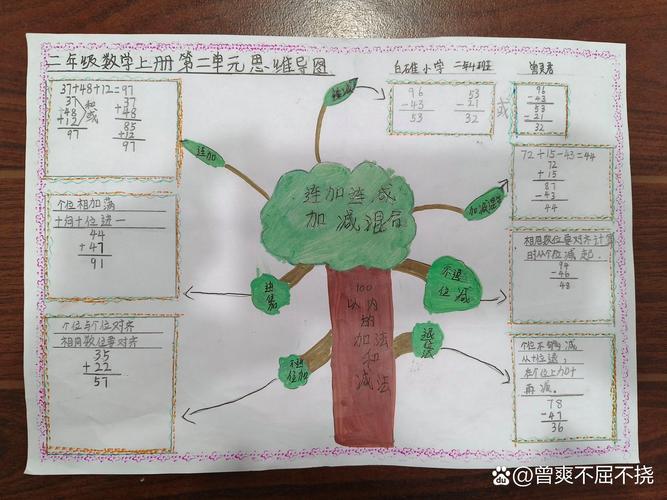 二年级数学上册第二单元思维导图
白石佳小学 二年4班
37+48+12=97
37
+48
+12
97
和
或
37
+48
85
+12
97
连加
连减
96
-43
53
53
-21
32
或
96
-43
53
-21
32
加减混合
72+15-43=44
72
+15
87
-43
44
连加连减
加减混合
个位相加满
十向十位进一
44
+47
91
进位加
相同数位要对齐计算
时从个位减起.
94
-46
48
不退位减
100
以内
的
加法
和
减法
个位与个位对齐
相同数位要对齐
35
+22
57
不进位加
退位减
个位不够减
从十位退1
在个位上加十
再减.
78
-47
36
曾爽不屈不挠